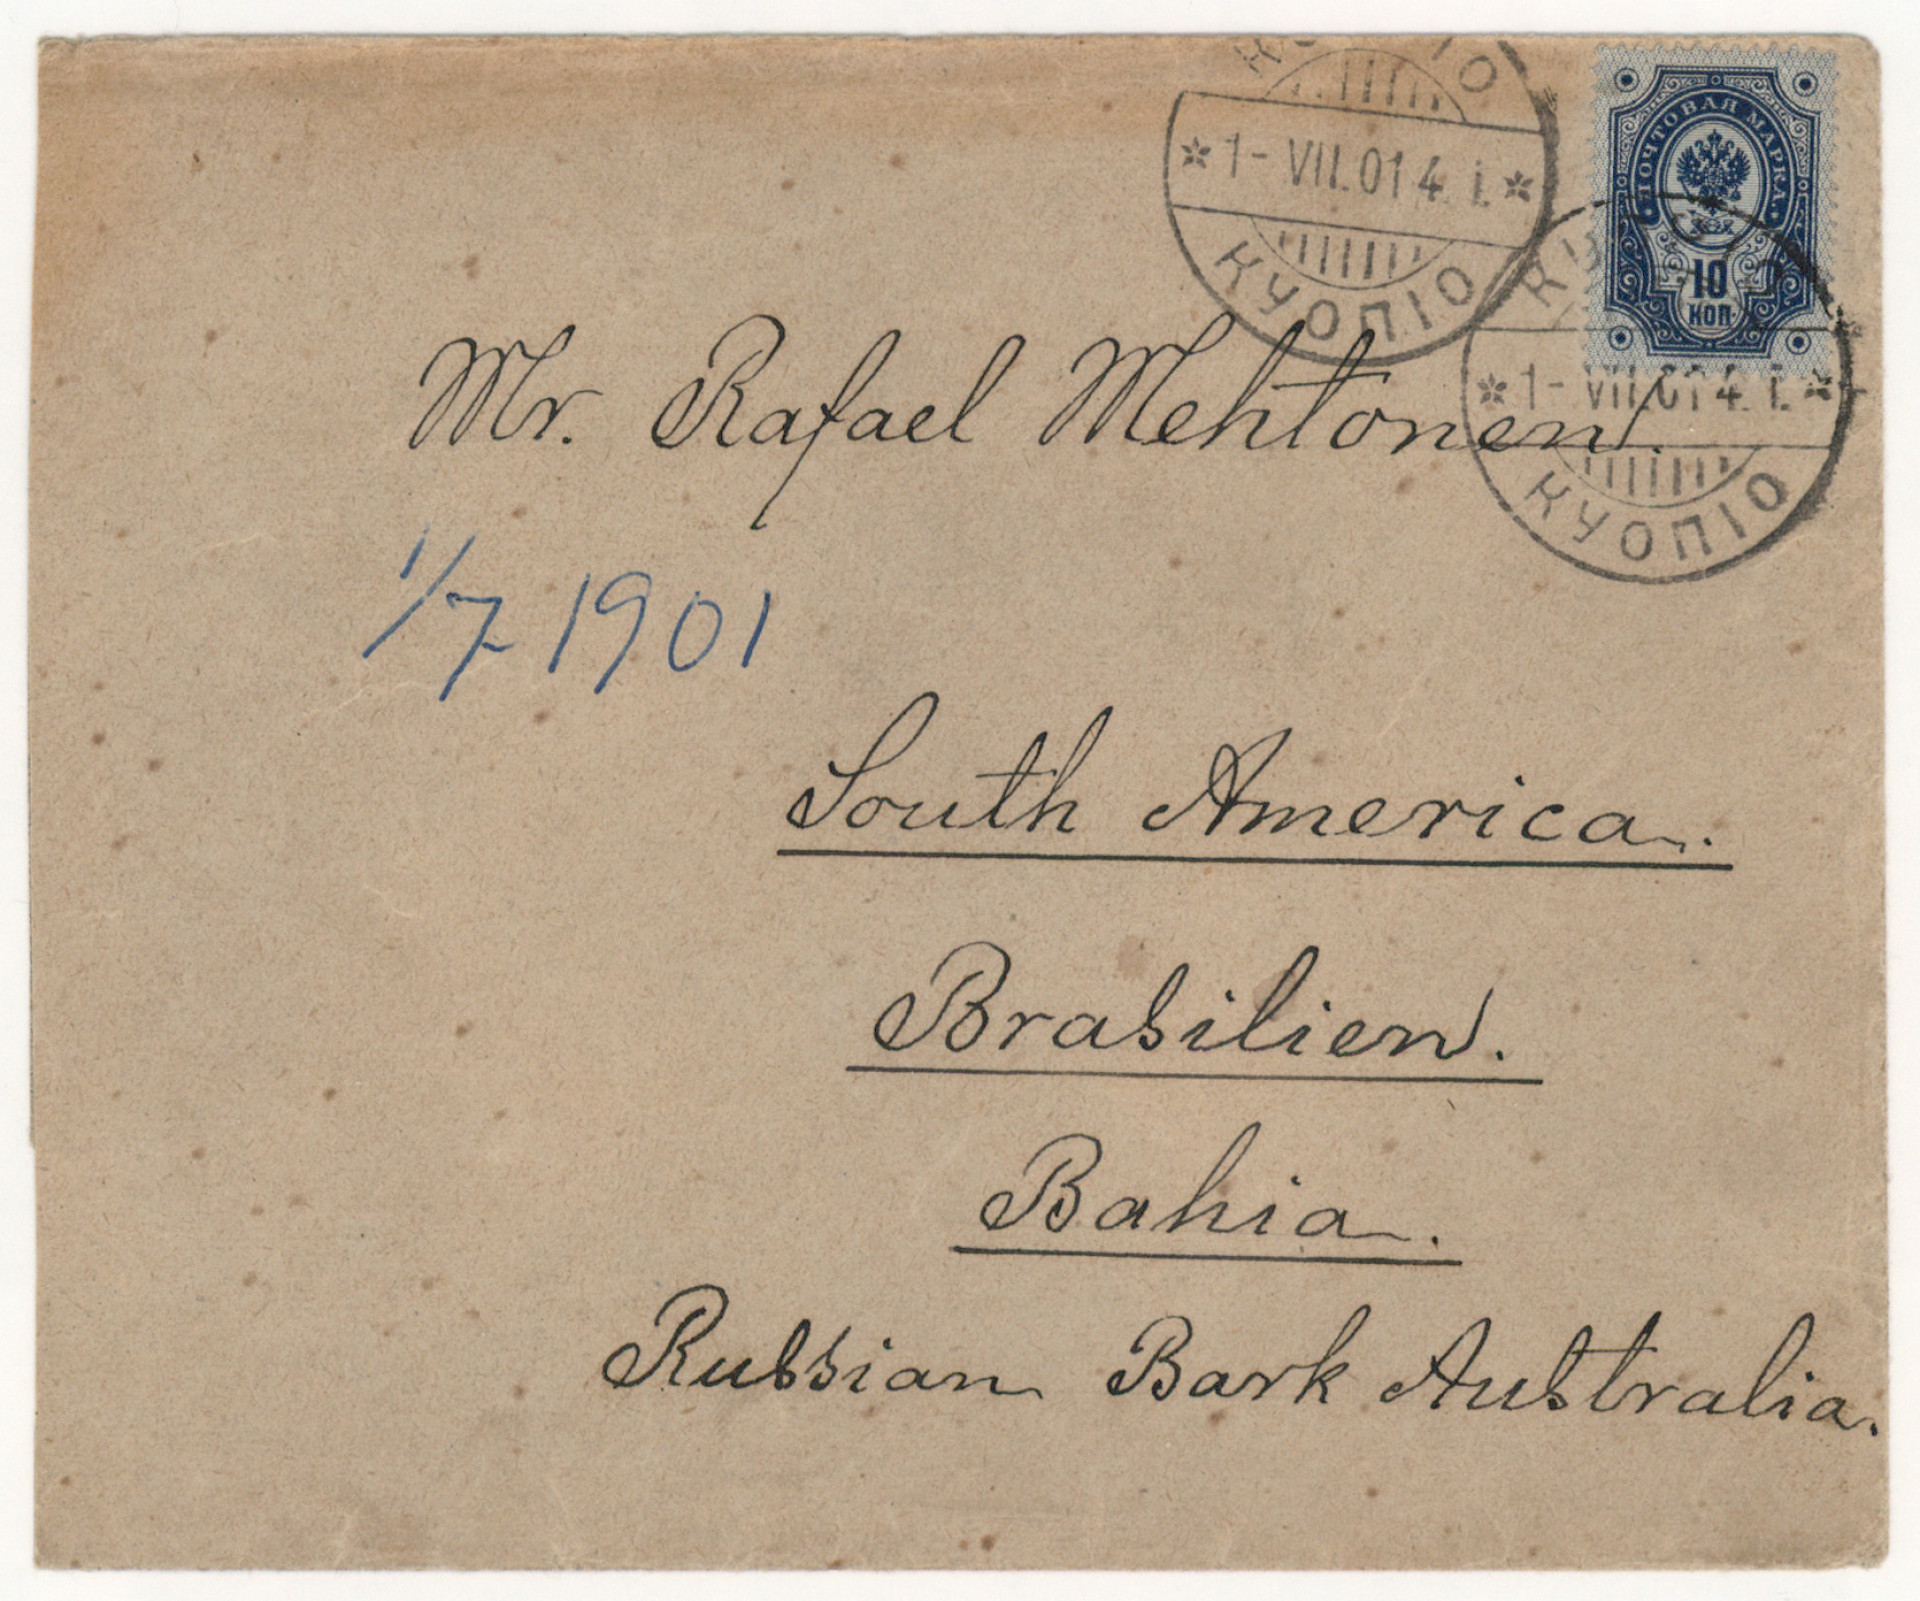 KUOPIO
1-VII.01 4. i.
КУОПІО
ПОЧТОВАЯ МАРКА
10
КОП.
1-VII.01 4. i.
КУОПІО
Mr. Rafael Mehtonen.
1/7 1901
South America.
Brasilien.
Bahia.
Russian Bark Australia.